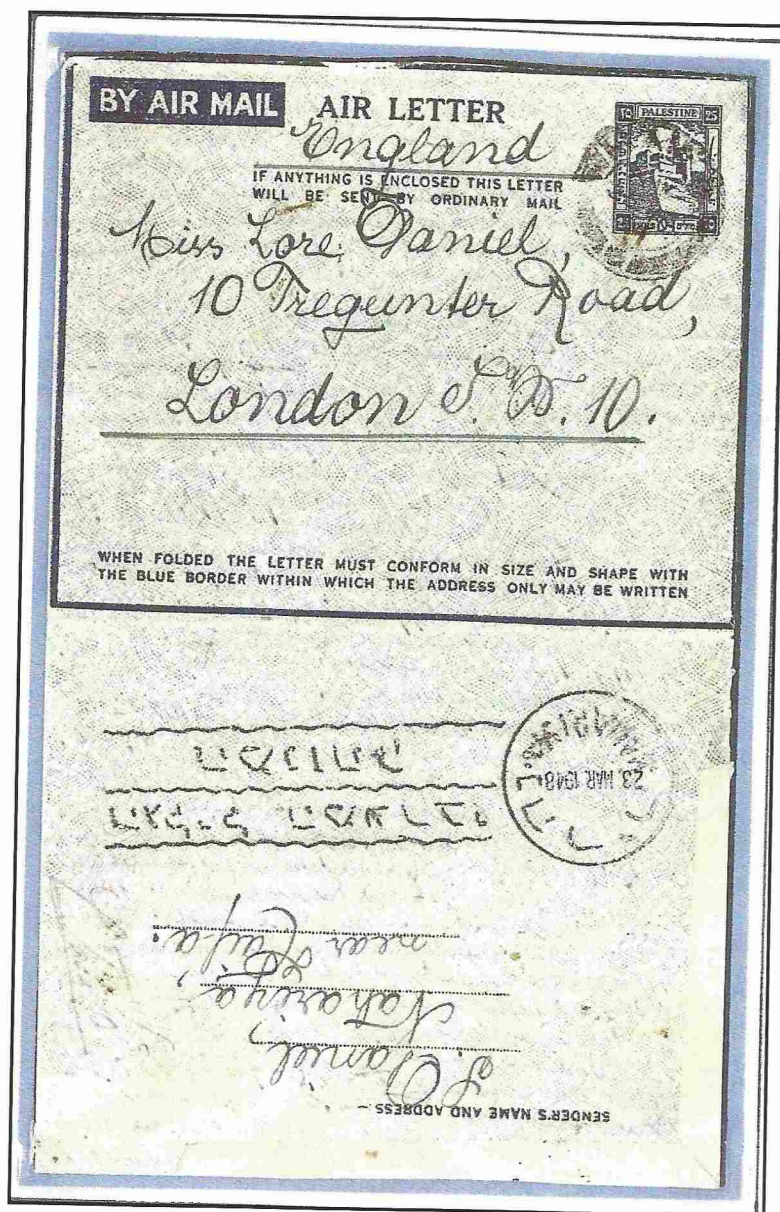 BY AIR MAIL
AIR LETTER
England
IF ANYTHING IS ENCLOSED THIS LETTER
WILL BE SENT BY ORDINARY MAIL
PALESTINE
25 25
Miss Lore Daniel,
10 Tregunter Road,
London S.W. 10.
WHEN FOLDED THE LETTER MUST CONFORM IN SIZE AND SHAPE WITH
THE BLUE BORDER WITHIN WHICH THE ADDRESS ONLY MAY BE WRITTEN
SENDER'S NAME AND ADDRESS:—
S. Daniel,
Nahariya
near Haifa.
23 MAR 1948